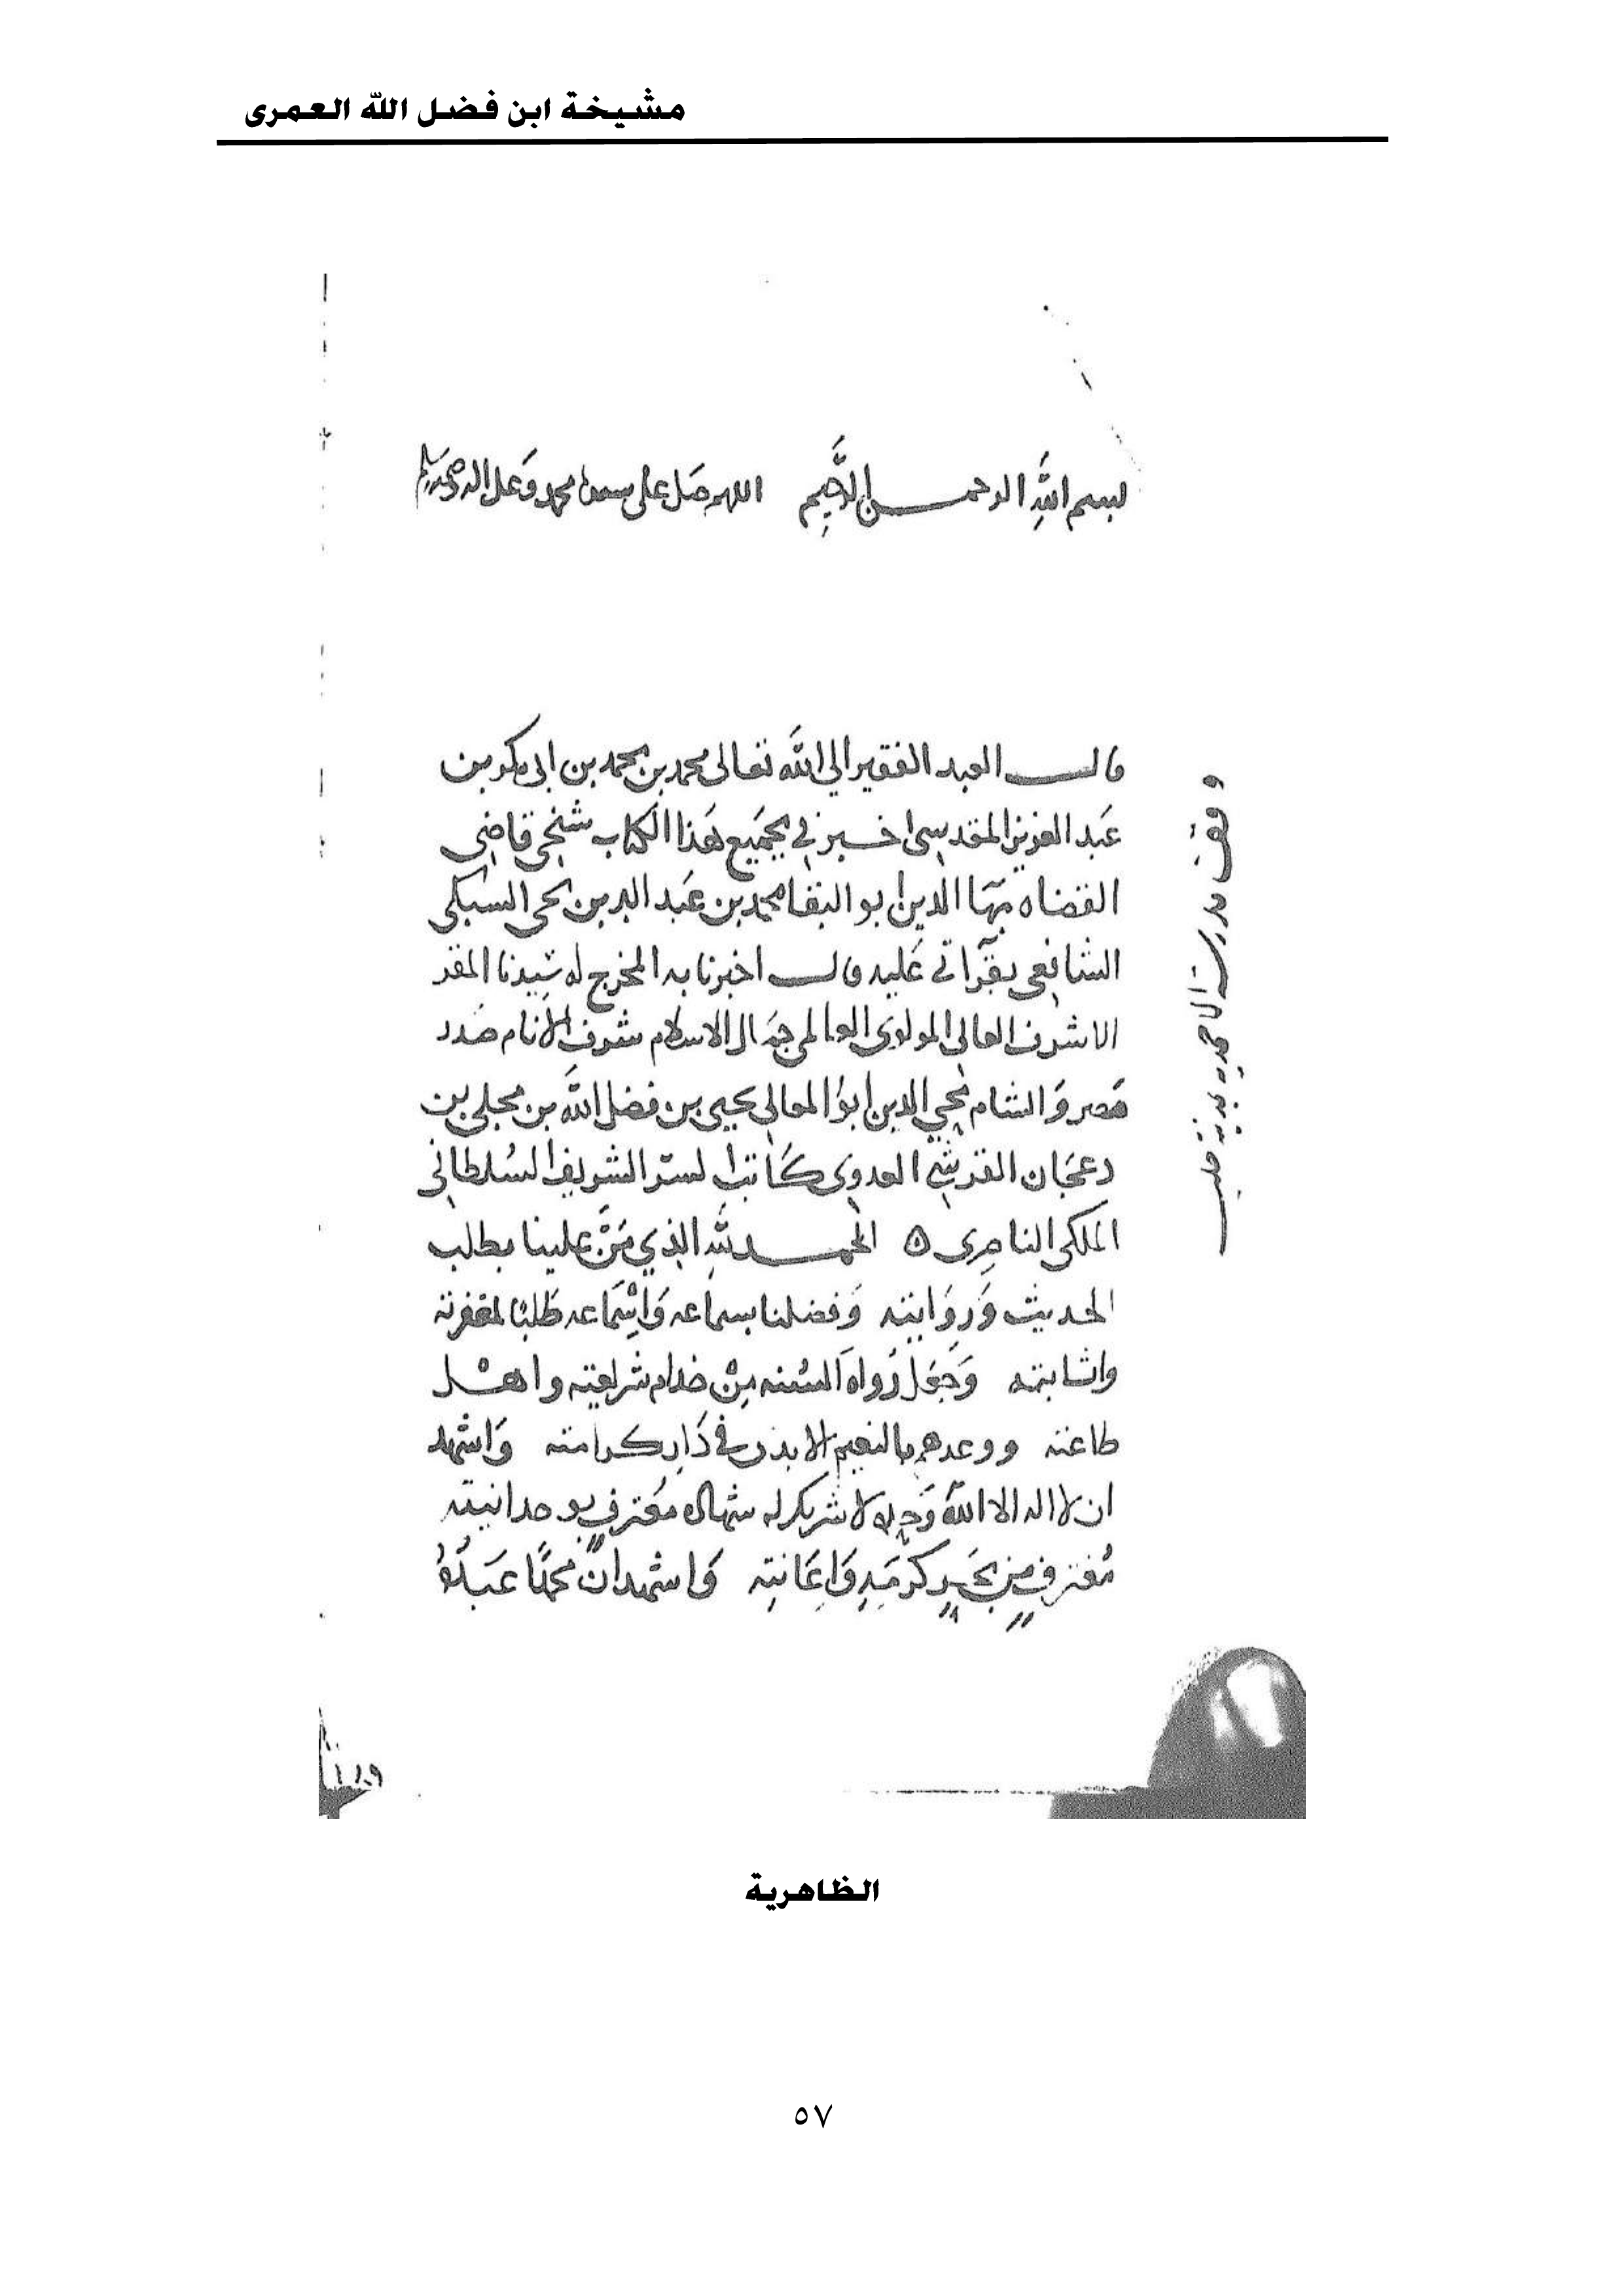 مشيخة ابن فضل الله العمرى
بسم الله الرحمن الرحيم اللهم صل على سيدنا محمد وعلى اله وصحبه وسلم
قال العبد الفقير الي الله تعالى محمد بن محمد بن ابى بكر بن
عَبد العزيز المقدسى اخبرني بجَميع هَذا الكتاب شيخى قاضى
القضاه بهَا الدين ابو البقا محمد بن عَبد البر بن يحيى السبكى
الشافعى بقرآتي عَليه قال اخبرنا به المخرج له سَيدنا المقر
الاشرف العالى المولوى العالمى جمَال الاسلام شرف الأنام صَدر
مَصر وَالشام محيي الدين ابوُ المعالى يحيى بن فضل الله بن مجلى بن
دعجَان القرشي العدوى كَاتب السر الشريف السُلطانى
الملكى الناصرى ه الحمد للهِ الذي مَنَّ علينا بطلب
الحديث وَروَايته وَفضلنا بسمَاعه وَاسْمَاعه طَلبًا لمغفرته
واثابته وَجَعَل رُواه السُنه مِنْ خدام شريعته واهْل
طاعته ووعدهم بالنعيم الابدى في دَار كرامته وَاشهد
ان لا اله الا اللهُ وَحده لا شريك له شهاده مُعترفٍ بوحدانيته
مُغترفٍ من بَحرِ كرَمِهِ وَاِعَانتِه وَاشهد انّ محمدًا عَبدُهُ
وقف مدرسة الاحمديه بمدينة حلب
الظاهرية
٥٧